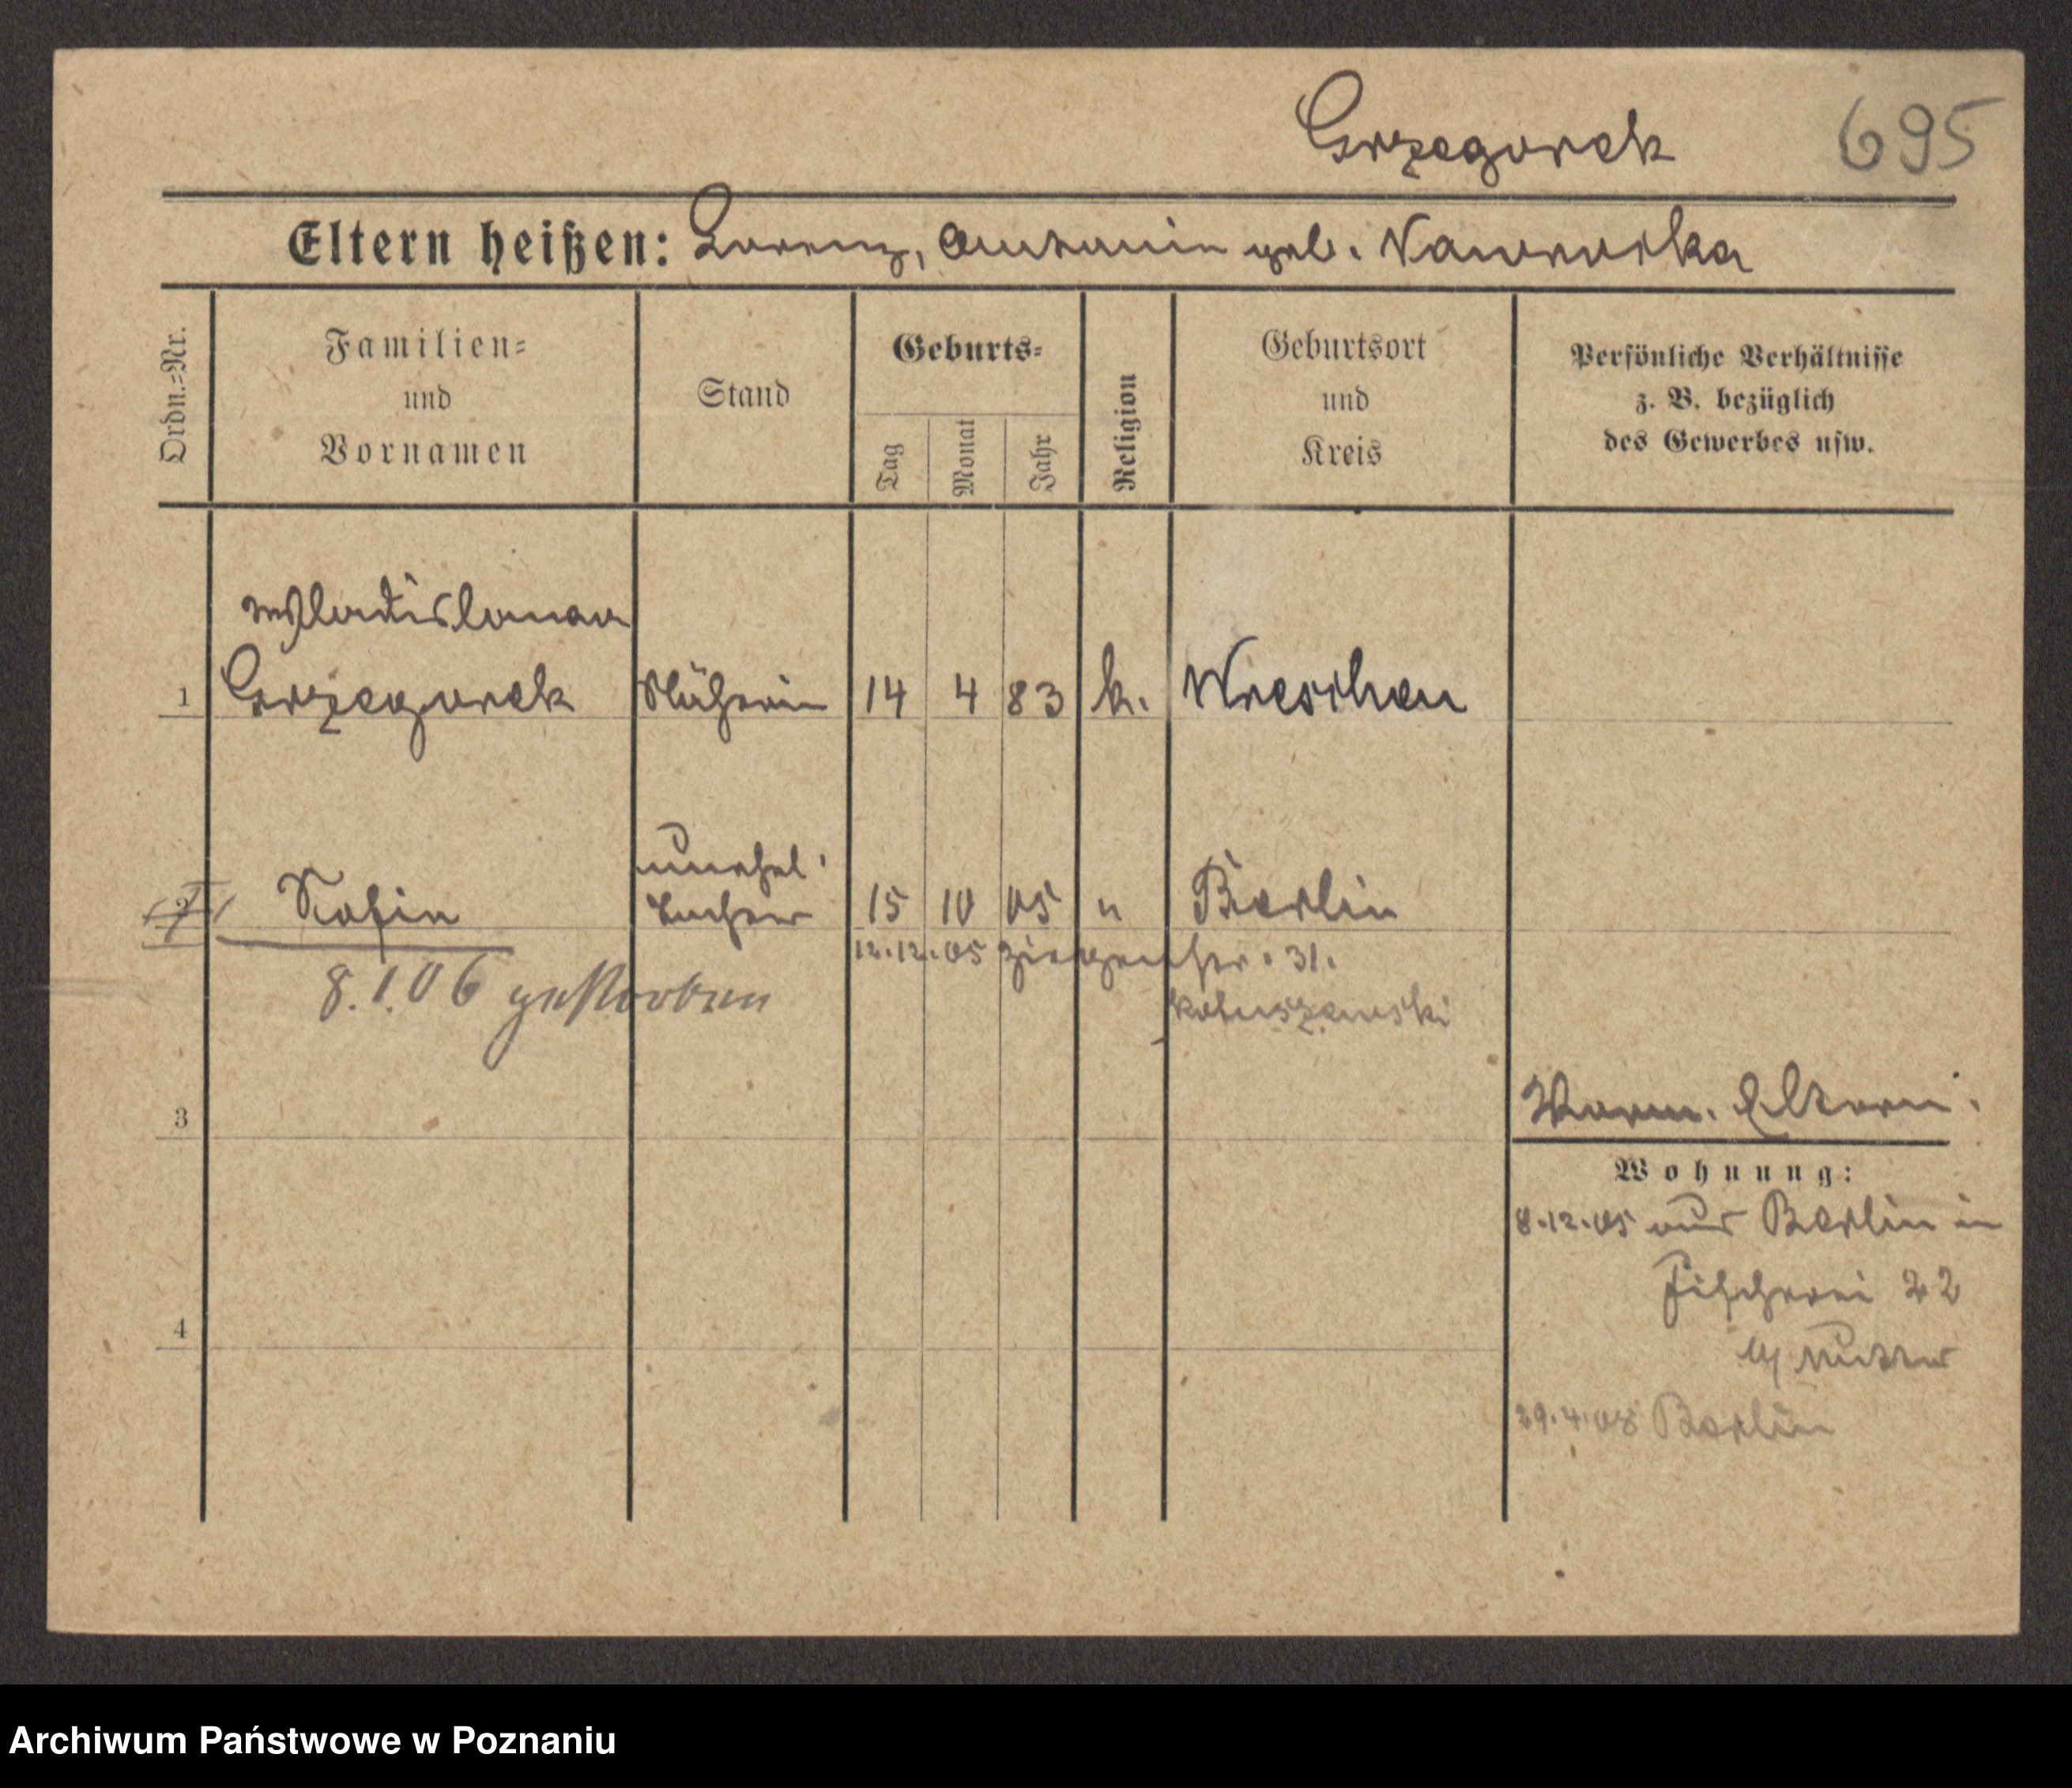 Grzegorek 695
Eltern heißen: Lorenz, Antonin geb. Nawrocka
Ordn.-Nr.
Familien-
und
Vornamen
Stand
Geburts-
Tag
Monat
Jahr
Religion
Geburtsort
und
Kreis
Persönliche Verhältnisse
z. B. bezüglich
des Gewerbes usw.
Wladislawa
1 Grzegorek Näherin 14 4 83 k. Wreschen
unehel.
2 Sofia Tochter 15 10 05 " Berlin
12.12.05 31.
8.1.06 gestorben
3
Eltern.
Wohnung:
8.12.05 aus Berlin in
Fischerei 22
4
b/ Mutter
29.4.08 Berlin
Archiwum Państwowe w Poznaniu